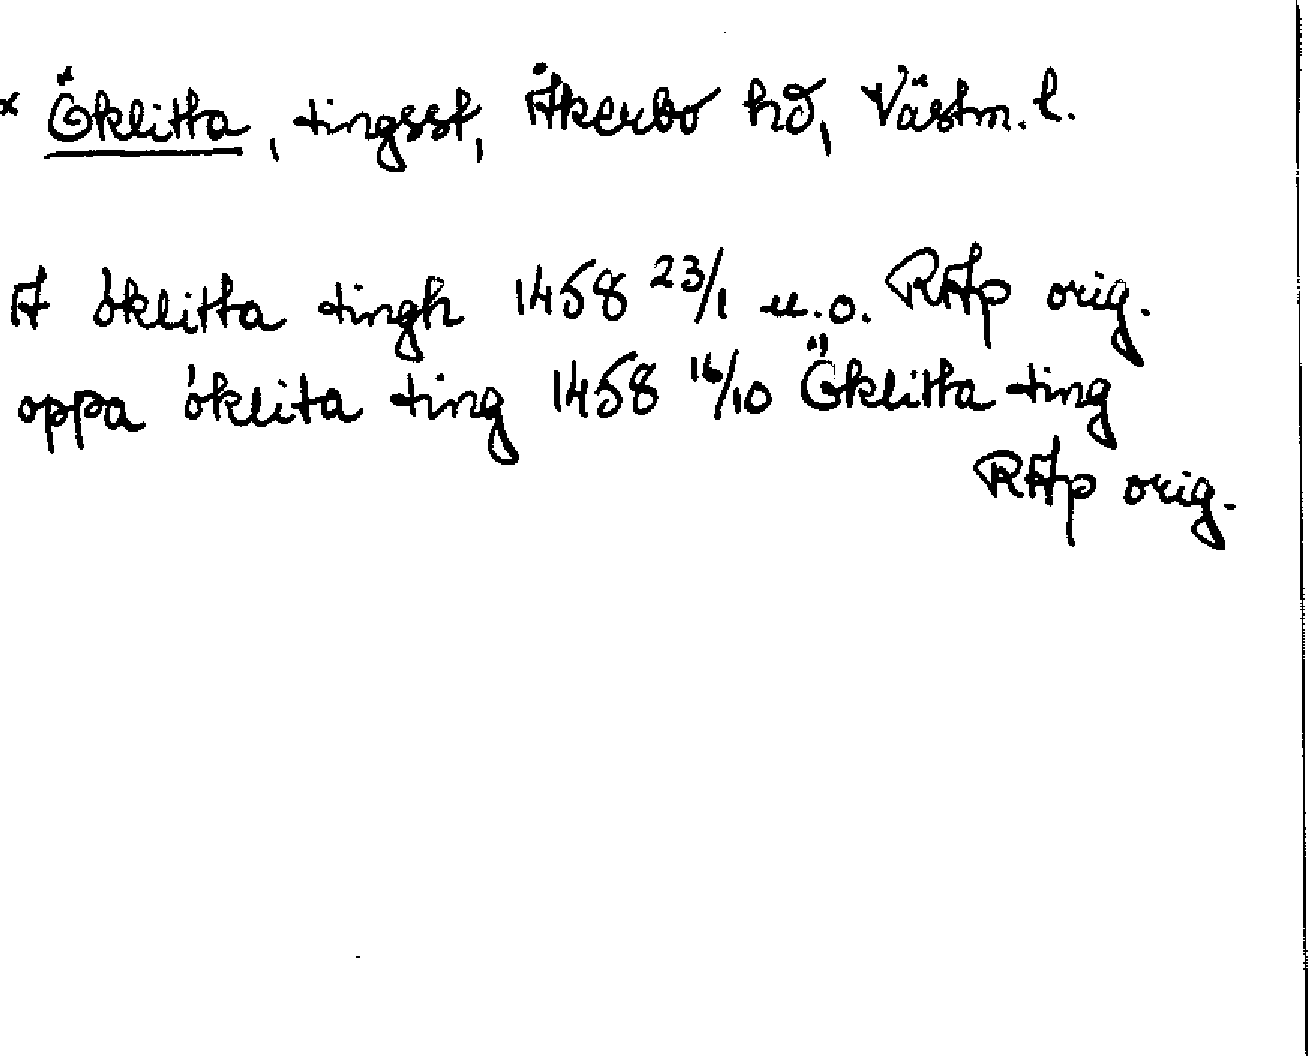 * Öklitta, tingsst, Åkerbo hd, Västm. l.
A óklitta tingh 1458 23/1 u.o. RAp orig.
oppa óklita ting 1458 16/10 Öklitta ting
RAp orig.